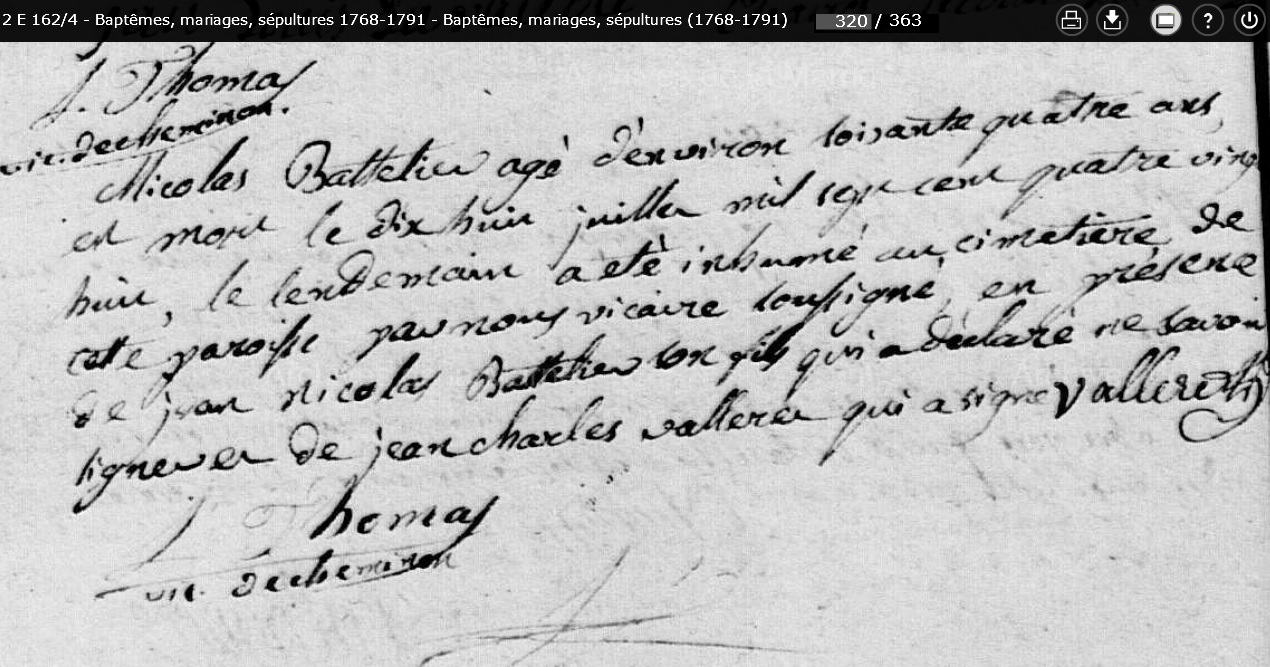 2 E 162/4 - Baptêmes, mariages, sépultures 1768-1791 - Baptêmes, mariages, sépultures (1768-1791) 320 / 363
J. Thomas
vic. de cheminon.
Nicolas Battelier agé d'environ soixante quatre ans,
est mort le dix huit juillet mil sept cent quatre vingt
huit, le lendemain a eté inhumé au cimetière de
cette paroisse par nous vicaire soussigné, en présence
de jean nicolas Battelier son fils qui a déclaré ne savoir
signer et de jean charles valleret qui a signé valleret
J Thomas
vic. de cheminon